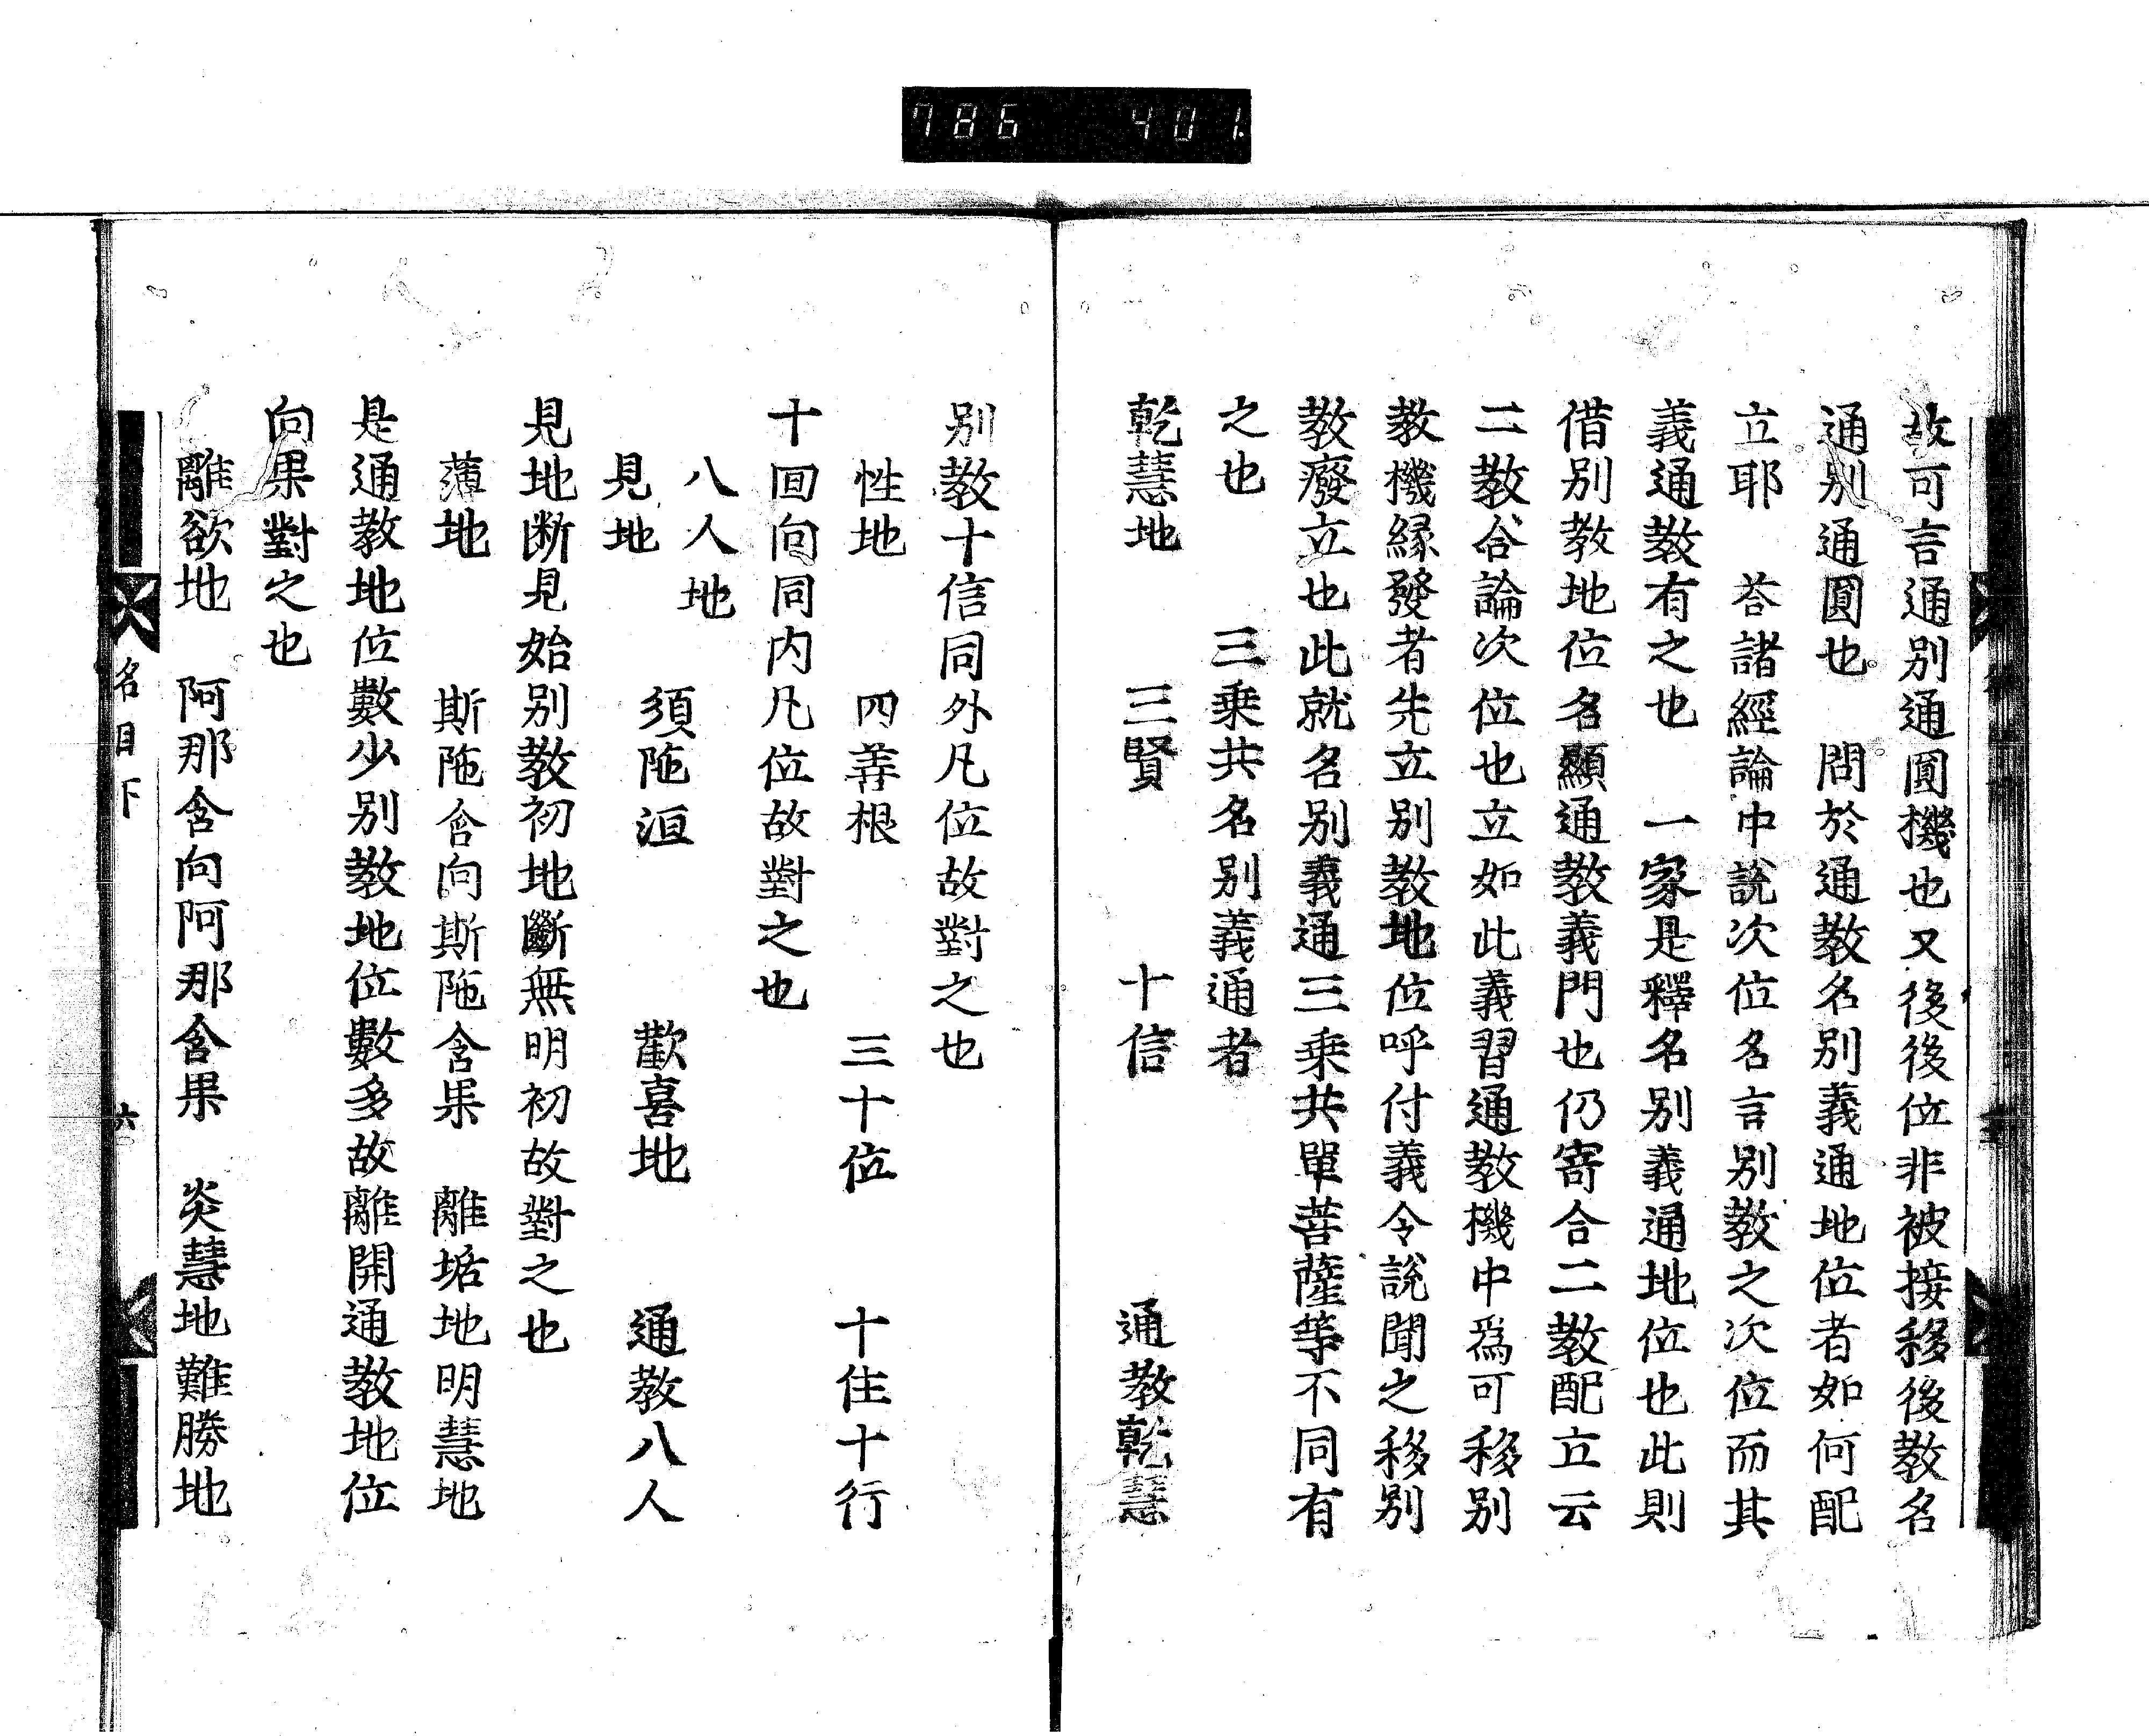 786 401
故可言通別通圓機也又後後位非被接移後教名
通別通圓也　問於通教名別義通地位者如何配
立耶　荅諸經論中說次位名言別教之次位而其
義通教有之也　一家是釋名別義通地位也此則
借別教地位名顯通教義門也仍寄合二教配立云
二教合論次位也立如此義習通教機中爲可移別
教機緣發者先立別教地位呼付義令說聞之移別
教廢立也此就名別義通三乗共單菩薩等不同有
之也　　三乗共名別義通者
乾慧地　　三賢　　　十信　　　　通教乾慧
別教十信同外凡位故對之也
性地　　四善根　　　三十位　　十住十行
十回向同内凡位故對之也
八人地
見地　　須陁洹　　　歡喜地　　通教八人
見地断見始別教初地斷無明初故對之也
薄地　　斯陁含向斯陁含果　離垢地明慧地
是通教地位數少別教地位數多故離開通教地位
向果對之也
離欲地　阿那含向阿那含果　炎慧地難勝地
名目下　六